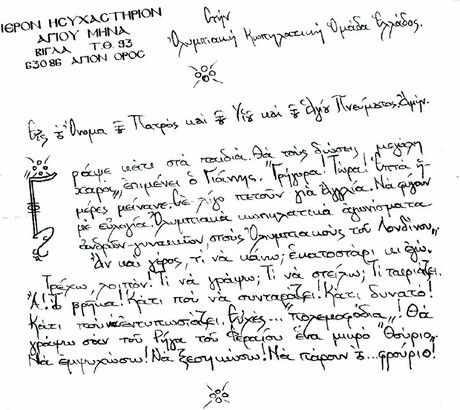 ΙΕΡΟΝ ΗСΥΧΑСΤΗΡΙΟΝ
ΑΓΙΟΥ ΜΗΝΑ
ΒΙΓΛΑ Τ.Θ. 93
63086 ΑΓΙΟΝ ΟΡΟС
Στήν
Ὀλυμπιακή Κωπηλατική Ὁμάδα Ἑλλάδος.
Εἰς τό Ὄνομα τοῦ Πατρός καί τοῦ Υἱοῦ καί τοῦ Ἁγίου Πνεύματος. Ἀμήν.
Γράψε κάτι στά παιδιά. Θά τούς δώσεις μεγάλη
χαρά», ἐπιμένει ὁ Γιάννης. "Γρήγορα! Τώρα! Ἑπτά ἡ-
μέρες μείνανε. Σέ λίγο πετοῦν γιά Ἀγγλία. Νά φύγουν
μέ εὐλογία. Ὀλυμπιακά κωπηλατικά ἀγωνίσματα
ἀνδρῶν-γυναικῶν στούς Ὀλυμπιακούς τοῦ Λονδίνου".
Ἄν καί γέρος, τί νά κάνω; ἑκατοστάρι κι ἐγώ.
Τρέχω, λοιπόν. Τί νά γράψω; Τί νά στείλω; Τί ταιριάζει.
Ἄ! Τό βρῆκα! Κάτι πού νά συνταράζει! Κάτι δυνατό!
Κάτι πού ἐντυπωσιάζει. Εὐχές... "πολεμοφόδια"! Θά
γράψω σάν τοῦ Ρήγα τοῦ Φεραίου ἕνα μικρό "Θούριο".
Νά ἐμψυχώσω! Νά ξεσηκώσω! Νά πάρουν τό... φρούριο!